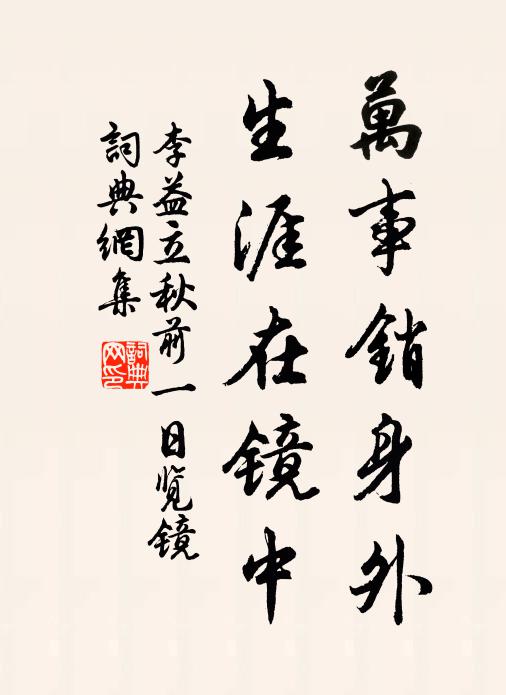 萬事銷身外
生涯在镜中
李益立秋前一日览镜
詞典網集
詞典
网印